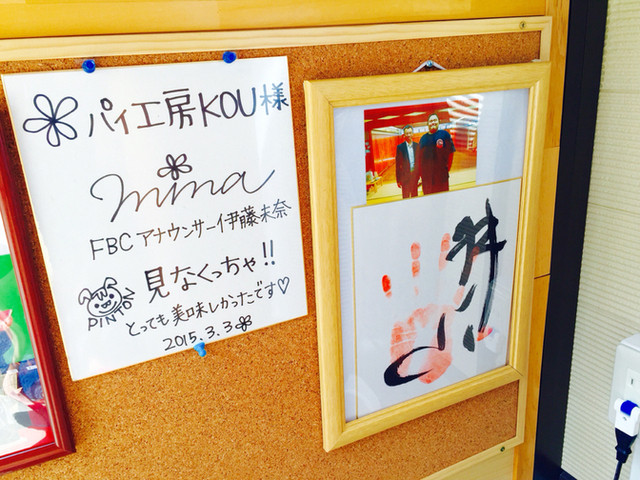 パイ工房KOU様
mina
FBCアナウンサー伊藤未奈
見なくっちゃ!!
PINTON
とっても美味しかったです♡
2015.3.3